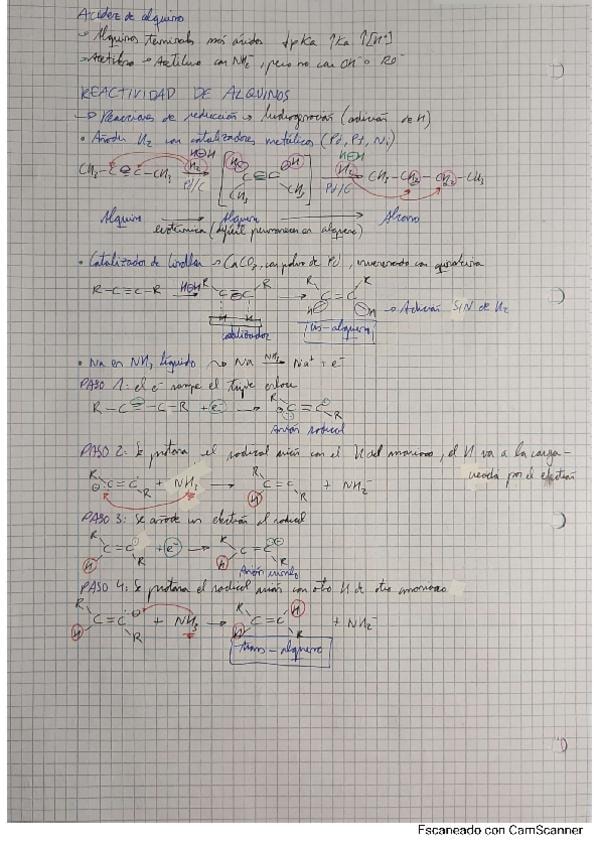 Acidez de alquinos
→ Alquinos terminales más ácidos ↓pKa ↑Ka ↑[H⁺]
→ Acetileno → Acetiluro con NH₂⁻, pero no con OH⁻ o RO⁻
REACTIVIDAD DE ALQUINOS
→ Reacciones de reducción → hidrogenación (adición de H)
• Añadir H₂ con catalizadores metálicos (Pd, Pt, Ni)
H⊖H H⊖H
CH₃-C≡C-CH₃ H₂ Pd/C [H H C=C CH₃ CH₃] H₂ Pd/C CH₃-CH₂-CH₂-CH₃
Alquino → Alqueno → Alcano
exotérmica (difícil permanecer en alqueno)
• Catalizador de Lindlar → CaCO₃, con polvo de Pd, envenenado con quinolina
R-C≡C-R H⊖H R C=C R → R C=C R
H H H H → Adición SIN de H₂
catalizador cis-alqueno
• Na en NH₃ líquido → Na NH₃ → Na⁺ + e⁻
PASO 1: el e⁻ rompe el triple enlace
R-C≡C-R + e⁻ → R C=C R
Anión radical
PASO 2: Se protona el radical anión con el H del amoniaco, el H va a la carga
creada por el electrón
R C=C R + NH₃ → R H C=C R + NH₂⁻
PASO 3: Se añade un electrón al radical
R H C=C R + e⁻ → R H C=C R
Anión vinilo
PASO 4: Se protona el radical anión con otro H de otro amoniaco
R H C=C R + NH₃ → R H C=C H R + NH₂⁻
trans-alqueno
Escaneado con CamScanner